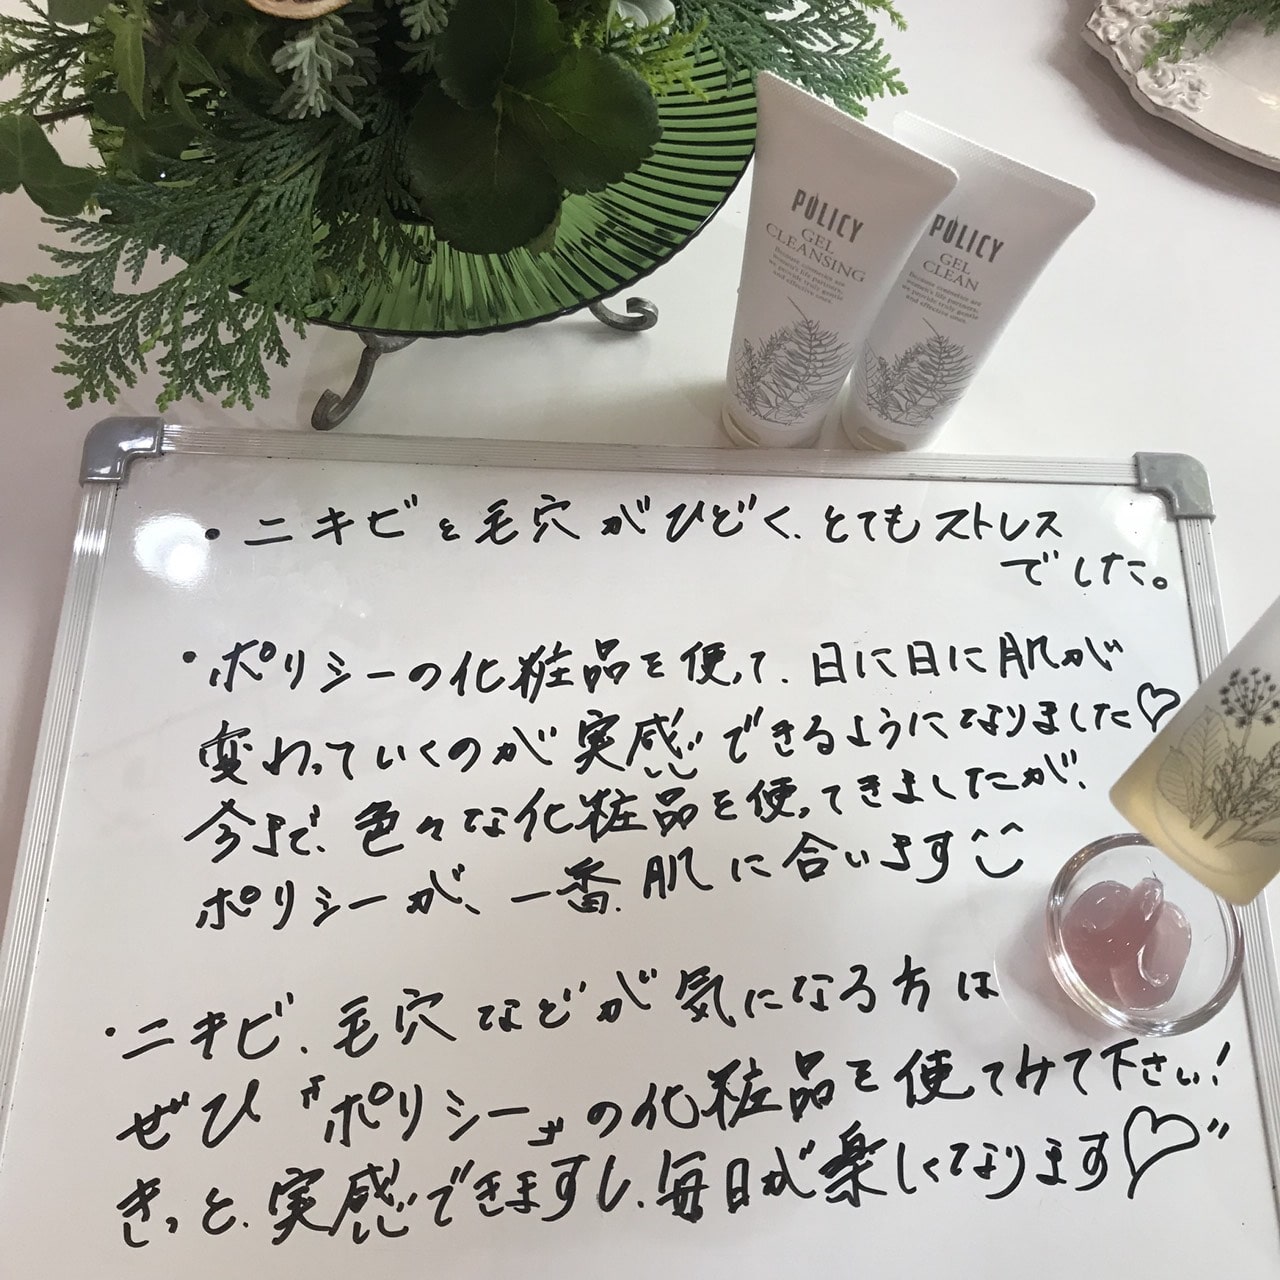 POLICY
GEL
CLEANSING
Biobute cosmetics are
women's life partners,
we provide truly gentle
and effective ones
POLICY
GEL
CLEAN
Biobute cosmetics are
women's life partners,
we provide truly gentle
and effective ones
・ニキビと毛穴がひどく、とてもストレス
でした。
・ポリシーの化粧品を使って、日に日に肌が
変わっていくのが実感できるようになりました♡
今まで、色々な化粧品を使ってきましたが、
ポリシーが、一番、肌に合います^^
・ニキビ、毛穴などが気になる方は
ぜひ『ポリシー』の化粧品を使てみて下さい!
きっと、実感できますし、毎日が楽しくなります♡"